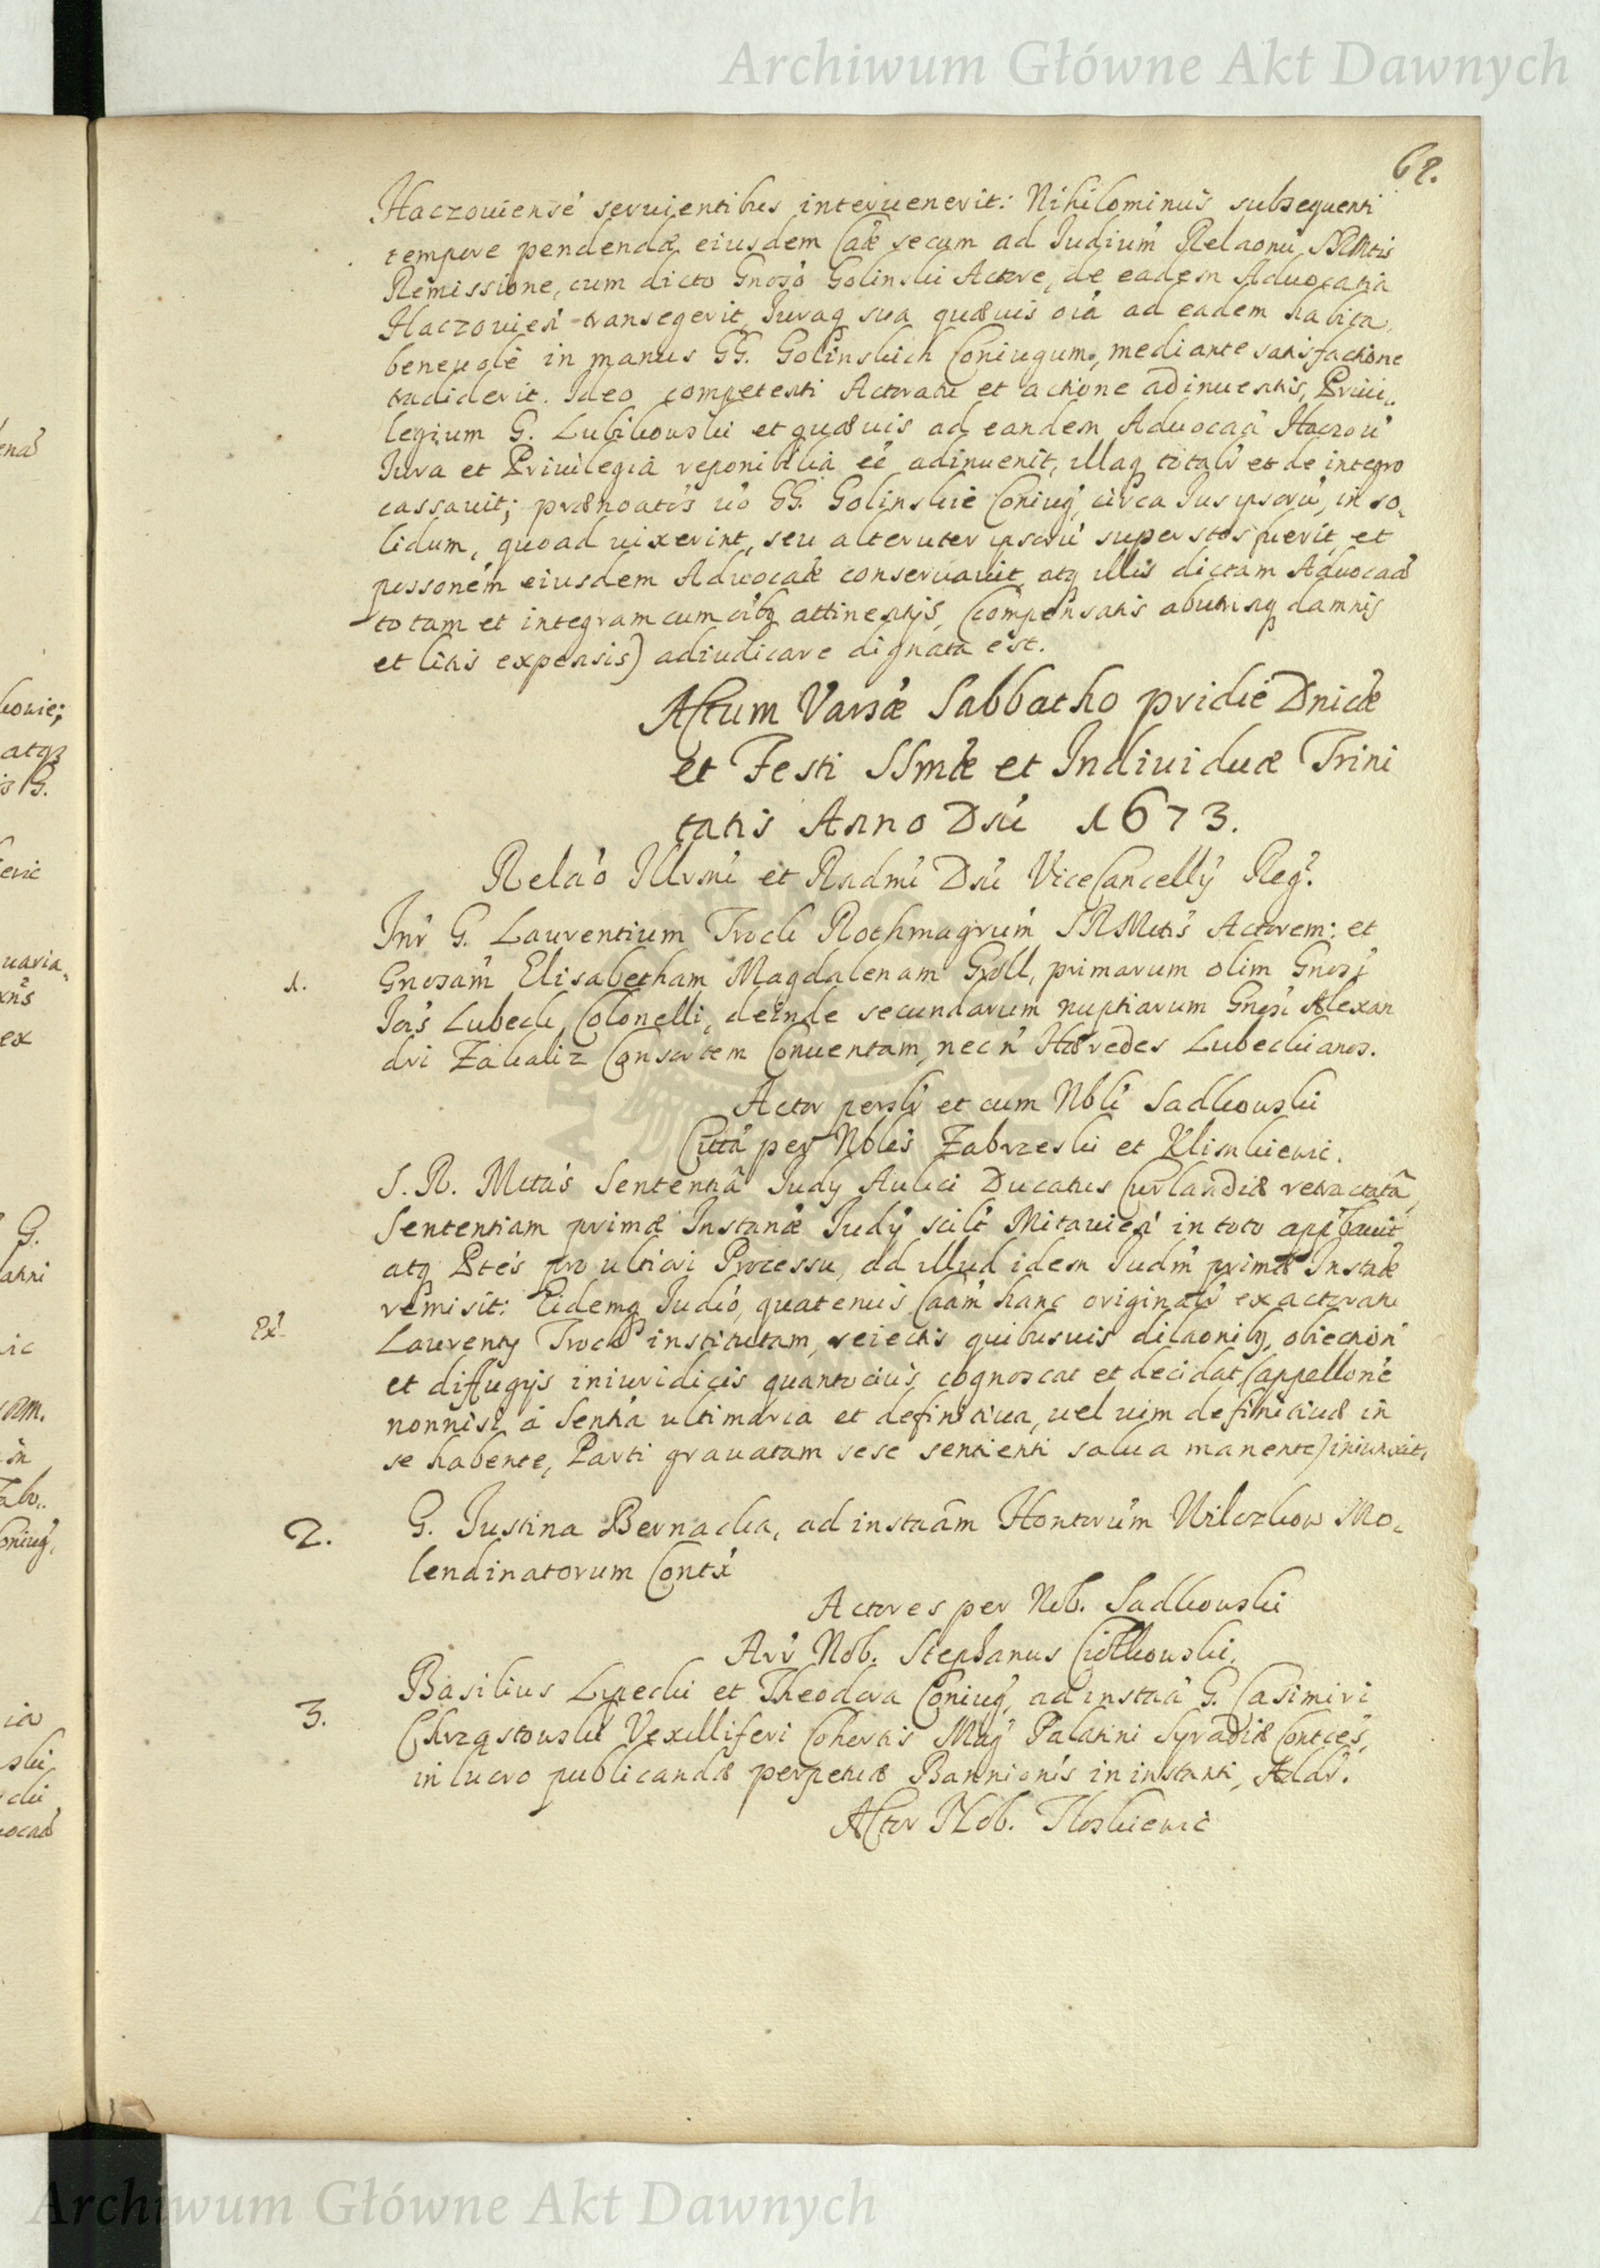 Archiwum Główne Akt Dawnych
62.
Haczouiensé seruientibus interuenerit: Nihilominus subsequenti
tempore pendendæ eiusdem Cáæ secum ad Iudium Relaonũ SRMtis
Remissione, cum dicto Gnoso Golinski Actore, de eadem Aduocatia
Haczouień transegerit, Iuraq sua quæuis oiá ad eadem habita,
beneuolè in manus GG. Golinskich Coniugum, mediante satisfactione
tradiderit. Ideo competenti Actoratu et actione adinuentis, Priui„
legium G. Lubikowski et quæuis ad eandem Aduocaã Haczou
Iura et Priuilegia reponibilia eé adinuenit, illaq totalr et de integro
cassauit; prænoatis uó GG. Golinskie Coniug, circa Ius ipsorũ, in so„
lidum, quoad uixerint, seu alteruter ipsorũ superstes fuerit, et
possoném eiusdem Aduocaæ conseruauit, atq illis dictam Aduocaã
totam et integram cum oibq attinentijs, (compensatis abutrisq damnis
et litis expensis) adiudicare dignata est.
Actum Varsæ Sabbatho pridie Dnicæ
et Festi SSmæ et Indiuiduæ Trini
tatis Anno Dni 1673.
Relaó Illrmi et Rndmi Dni ViceCancellÿ Reg.
Inr G. Laurentium Trock Rothmagrum SRMtis Actorem: et
1. Gnosam Elisabetham Magdalenam Groll, primarum olim Gnosi
Iois Lubeck, Colonelli, deinde secundarum nuptiarum Gnosi Alexan
dri Zakaliz Consortem Conuentam, nec n Hæredes Lubeckianos.
Actor persolr et cum Nbli Sadkowski
Citta per Nbles Zabrzeski et Klimkiewic.
S. R. Mttas Sententiâ Iudÿ Aulici Ducatus Curlandiæ retractatâ,
Sententiam primæ Instanæ Iudÿ scilt Mitauień in toto appbauit
atq Ptes pro ulteriori Processu, ad illud idem Iudm primæ Instaæ
remisit: Eidemq Iudió, quatenus Caam hanc originalr ex actoratu
Ex. Laurenty Trock institutam, reiectis quibusuis dilaonibq, obiection
et diffugijs iniuridicis quantocius cognoscat et decidat (appelloné
nonnisi á Sentia ultimaria et definitiua, uel uim definitiuæ in
se habente, Parti grauatam sese sentienti salua manente) iniunxit.
2. G. Iustina Bernacka, ad instaâm Hontorum Wilczkow Mo„
lendinatorum Contx
Actores per Nob. Sadkowski
Arr Nob. Stephanus Ciołkowski.
3. Basilius Lipecki et Theodora Coniug, ad instaã G. Casimiri
Chrząstowski Vexilliferi Cohortis Mag Palatini Syradiæ Contces,
in lucro publicandæ perpetuæ Bannionis in instanti, Aldr.
Actor Nob. Iloskiewic
Archiwum Główne Akt Dawnych